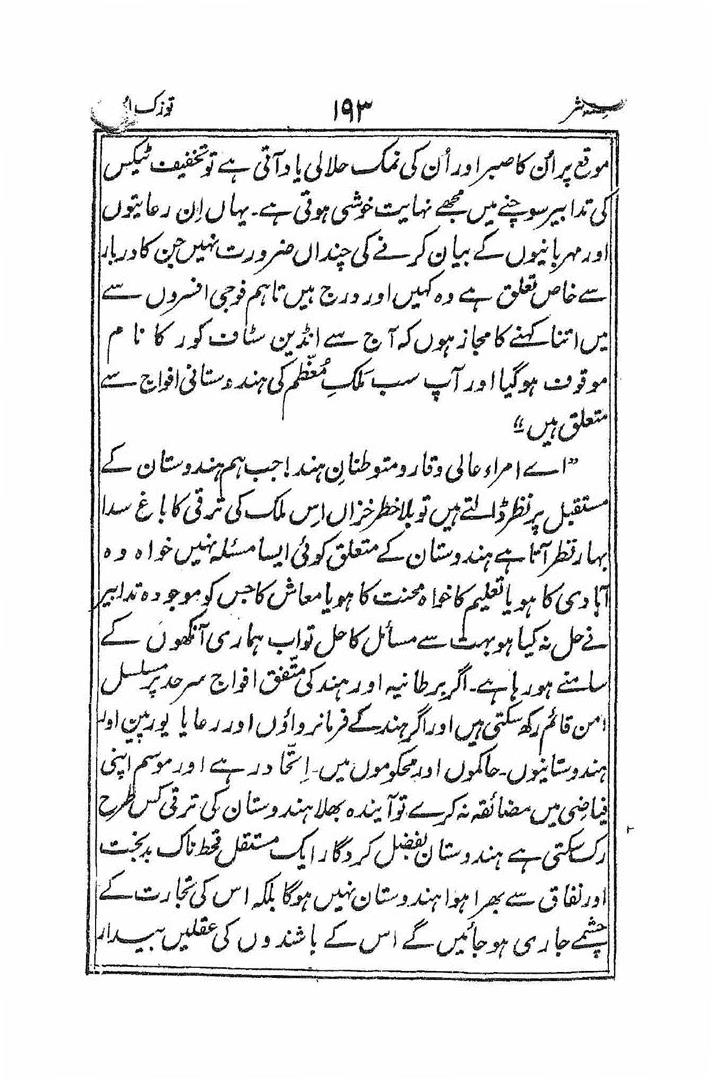 ۱۹۳
توزک
موقع پر اُن کا صبر اور اُن کی نمک حلالی یاد آتی ہے تو تخفیف ٹیکس
کی تدابیر سوچنے میں مجھے نہایت خوشی ہوتی ہے۔ یہاں اِن رعایتوں
اور مہربانیوں کے بیان کرنے کی چنداں ضرورت نہیں جن کا دربار
سے خاص تعلق ہے وہ کہیں اور درج ہیں تاہم فوجی افسروں سے
میں اتنا کہنے کا مجاز ہوں کہ آج سے انڈین سٹاف کور کا نام
موقوف ہو گیا اور آپ سب مَلکِ مُعظّم کی ہندوستانی افواج سے
متعلق ہیں“
”اے امراء عالی وقار و متوطنانِ ہند! جب ہم ہندوستان کے
مستقبل پر نظر ڈالتے ہیں تو بلا خطرِ خزاں اس ملک کی ترقی کا باغ سدا
بہار نظر آتا ہے ہندوستان کے متعلق کوئی ایسا مسئلہ نہیں خواہ وہ
آبادی کا ہو یا تعلیم کا خواہ محنت کا ہو یا معاش کا جس کو موجودہ تدابیر
نے حل نہ کیا ہو بہت سے مسائل کا حل تو اب ہماری آنکھوں کے
سامنے ہو رہا ہے۔ اگر برطانیہ اور ہند کی متّفق افواج سرحد پر مسلسل
امن قائم رکھ سکتی ہیں اور اگر ہند کے فرمانرواؤں اور رعایا یورپین اور
ہندوستانیوں۔ حاکموں اور محکوموں میں۔ اِتّحاد رہے اور موسم اپنی
فیاضی میں مضائقہ نہ کرے تو آیندہ بھلا ہندوستان کی ترقی کس طرح
رک سکتی ہے ہندوستان بفضل کردگار ایک مستقل قحط ناک بدبخت
اور نفاق سے بھرا ہوا ہندوستان نہیں ہوگا بلکہ اس کی تجارت کے
چشمے جاری ہو جائیں گے اس کے باشندوں کی عقلیں بیدار